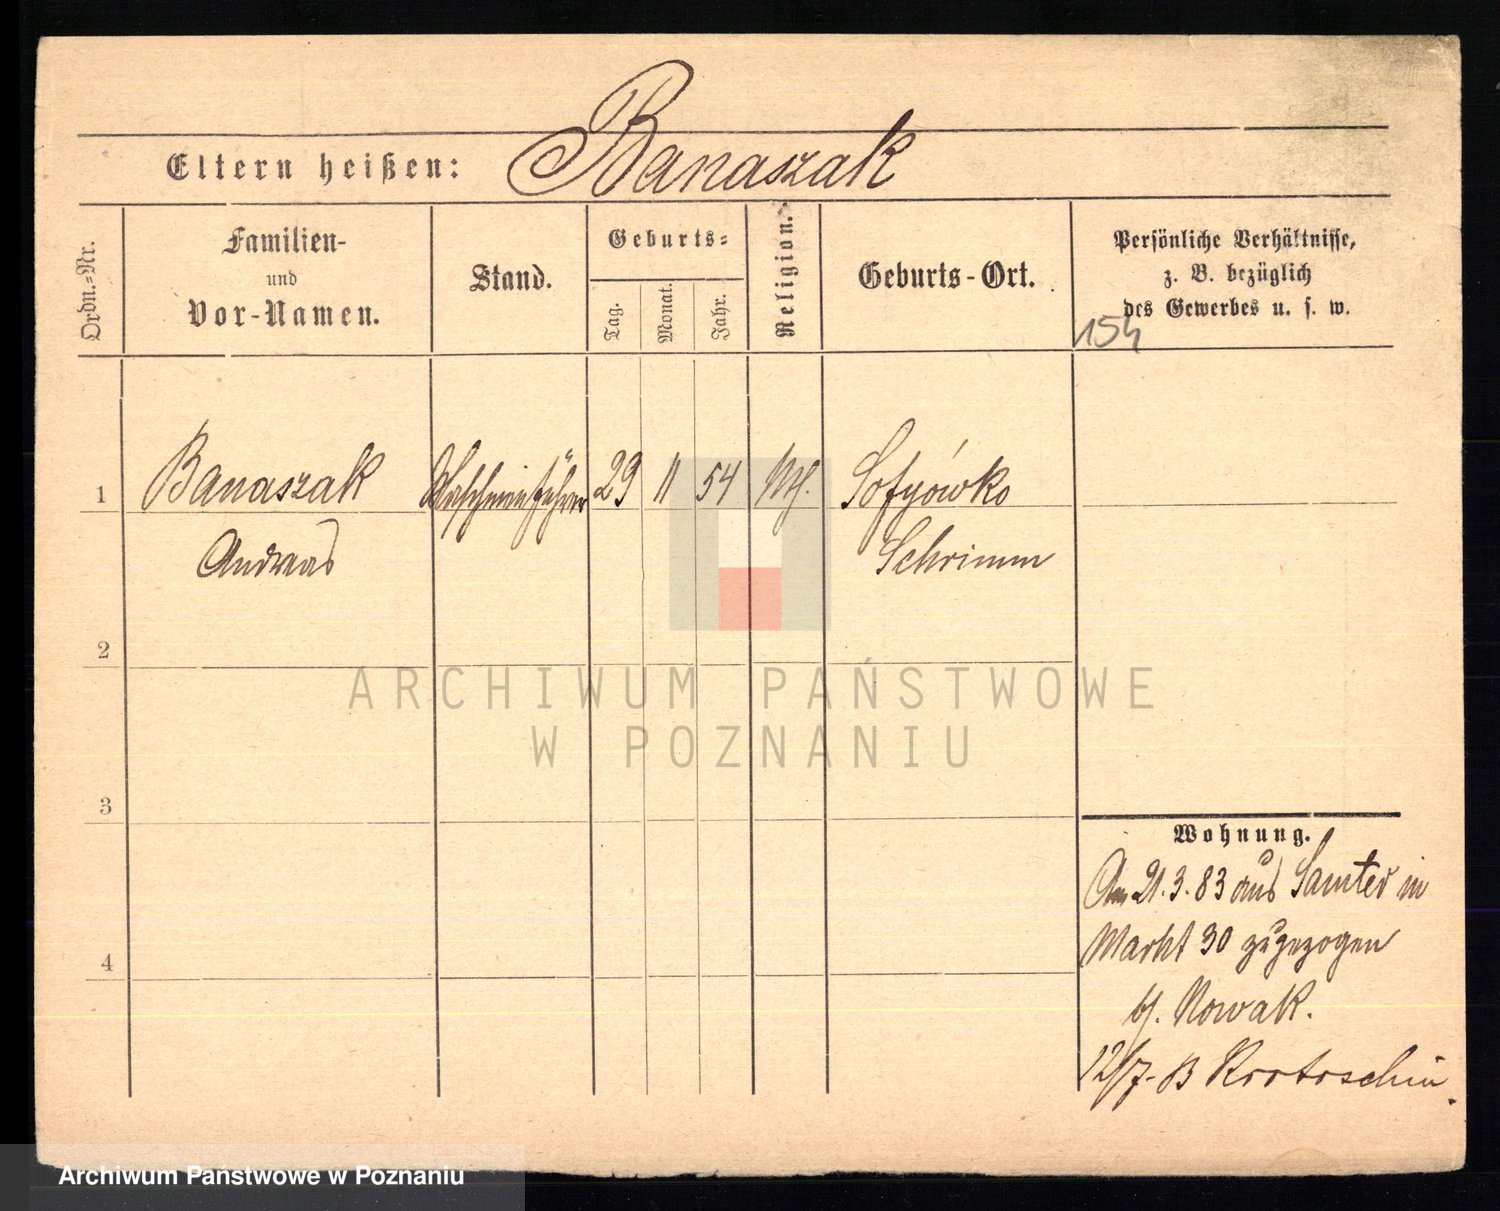 Eltern heißen: Banaszak
Ordn.-Nr.
Familien-
und
Vor-Namen.
Stand.
Geburts-
Tag.
Monat.
Jahr.
Religion.
Geburts-Ort.
Persönliche Verhältnisse,
z. B. bezüglich
des Gewerbes u. s. w.
154
1 Banaszak 29 11 54 Sofyówko
Andreas Schrimm
2
3
4
Wohnung.
Am 21.3.83 aus Samter in
Markt 30 zugezogen
b/. Nowak.
12/7. Krotoschin
ARCHIWUM PAŃSTWOWE
W POZNANIU
Archiwum Państwowe w Poznaniu